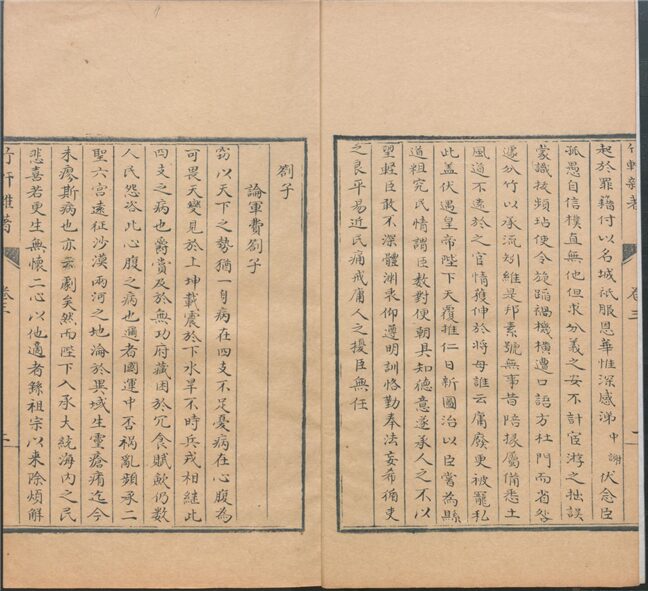 竹軒雜著 卷三
起於罪籍付以名城祗服恩華惟深感涕中謝伏念臣
孤愚自信樸直無他但求分義之安不計宦游之拙誤
蒙識拔頻玷使令旋蹈禍機橫遭口語方杜門而省咎
遽分竹以承流矧維是邦素號無事昔陪掾屬備悉土
風道不遠於之官情獲伸於將母誰云庸廢更被寵私
此蓋伏遇皇帝陛下天覆推仁日新圖治以臣嘗為縣
道粗究民情謂臣數對便朝具知德意遂承人之不以
望輕臣敢不深體淵衷仰遵明訓恪勤奉法妄希循吏
之良平易近民痛戒庸人之擾臣無任
劄子
論軍費劄子
竊以天下之勢猶一身病在四支不足憂病在心腹為
可畏天變見於上坤載震於下水旱不時兵戎相繼此
四支之病也爵賞及於無功府藏困於冗食賦歛仍數
人民怨咨此心腹之病也邇者國運中否禍亂頻承二
聖六宮遠征沙漠兩河之地淪於異域生靈瘡痍迄今
未瘳斯病也亦云劇矣然而陛下入承大統海內之民
悲喜若更生無懷二心以他適者繇祖宗以来除煩解
竹軒雜著 卷三